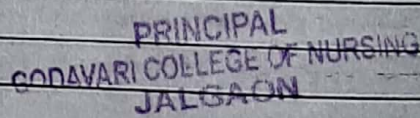 PRINCIPAL
GODAVARI COLLEGE OF NURSING
JALGAON